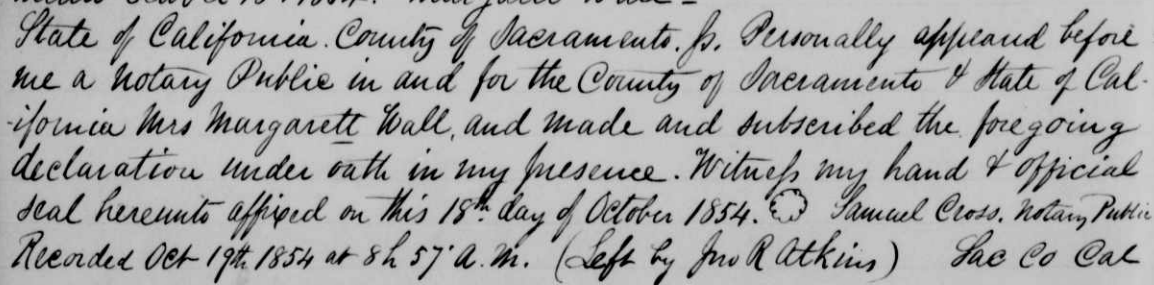 State of California. County of Sacramento. ss. Personally appeared before
me a Notary Public in and for the County of Sacramento & State of Cal-
-ifornia Mrs Margarett Wall, and made and subscribed the foregoing
declaration under oath in my presence. Witness my hand & official
seal hereunto affixed on this 18th day of October 1854. Samuel Cross. Notary Public
Recorded Oct 19th 1854 at 8h 57' A.M. (Left by Jno R Atkins) Sac Co Cal